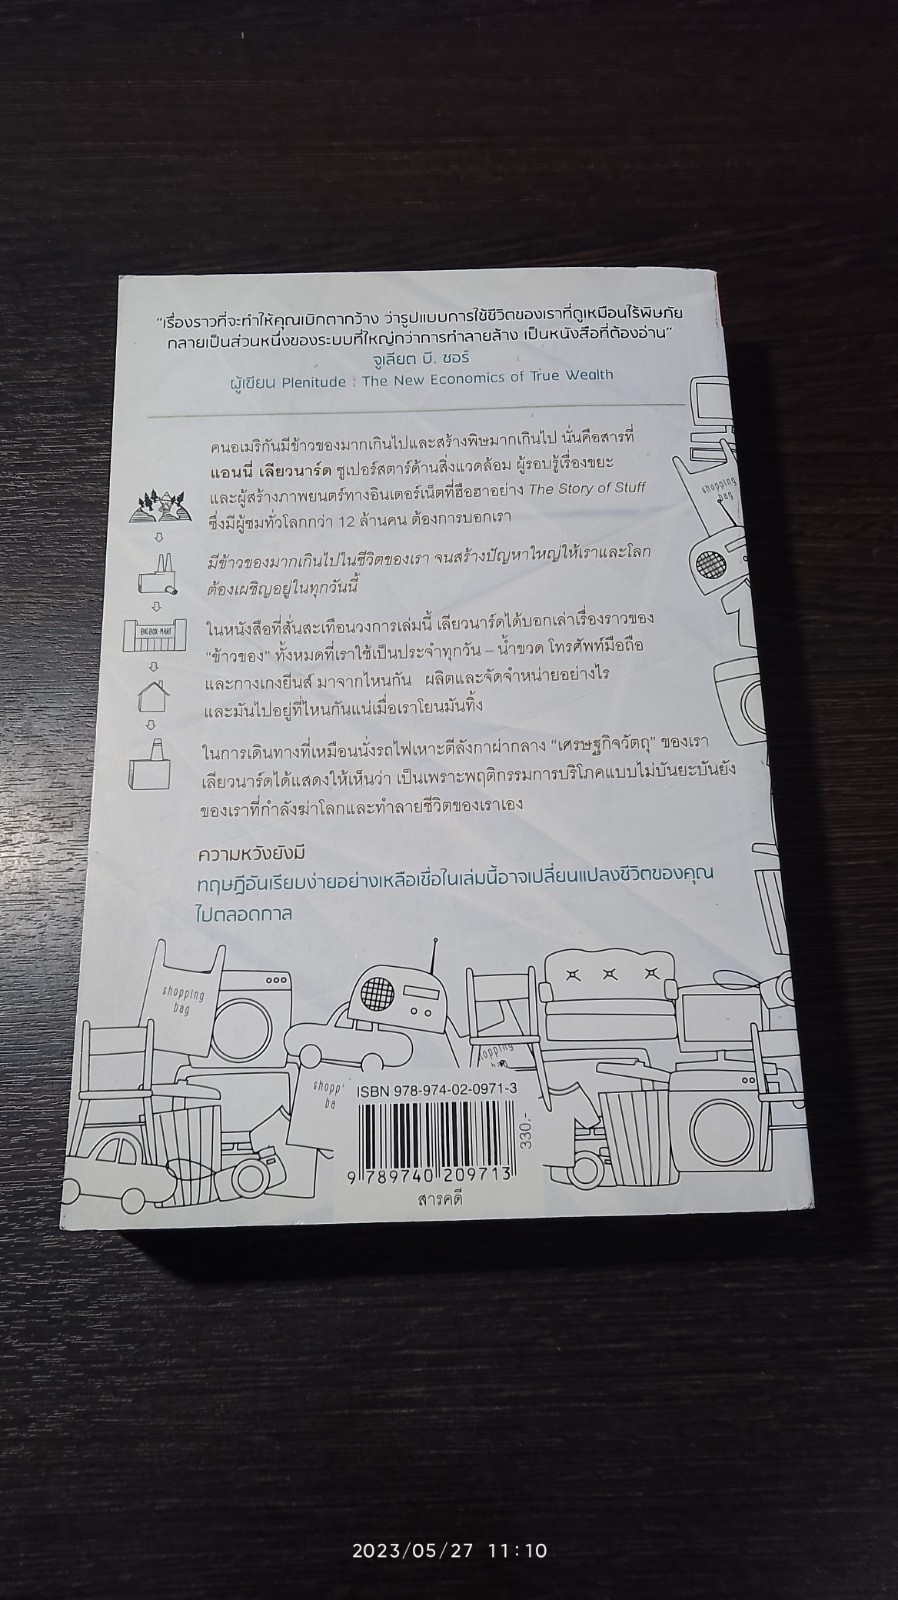 “เรื่องราวที่จะทำให้คุณเบิกตากว้าง ว่ารูปแบบการใช้ชีวิตของเราที่ดูเหมือนไร้พิษภัย
กลายเป็นส่วนหนึ่งของระบบที่ใหญ่กว่าการทำลายล้าง เป็นหนังสือที่ต้องอ่าน”
จูเลียต บี. ชอร์
ผู้เขียน Plenitude : The New Economics of True Wealth
คนอเมริกันมีข้าวของมากเกินไปและสร้างพิษมากเกินไป นั่นคือสารที่
แอนนี่ เลียวนาร์ด ซูเปอร์สตาร์ด้านสิ่งแวดล้อม ผู้รอบรู้เรื่องขยะ
และผู้สร้างภาพยนตร์ทางอินเตอร์เน็ตที่ฮือฮาอย่าง The Story of Stuff
ซึ่งมีผู้ชมทั่วโลกกว่า 12 ล้านคน ต้องการบอกเรา
มีข้าวของมากเกินไปในชีวิตของเรา จนสร้างปัญหาใหญ่ให้เราและโลก
ต้องเผชิญอยู่ในทุกวันนี้
BIG BOX-MART
ในหนังสือที่สั่นสะเทือนวงการเล่มนี้ เลียวนาร์ดได้บอกเล่าเรื่องราวของ
“ข้าวของ” ทั้งหมดที่เราใช้เป็นประจำทุกวัน – น้ำขวด โทรศัพท์มือถือ
และกางเกงยีนส์ มาจากไหนกัน ผลิตและจัดจำหน่ายอย่างไร
และมันไปอยู่ที่ไหนกันแน่เมื่อเราโยนมันทิ้ง
ในการเดินทางที่เหมือนนั่งรถไฟเหาะตีลังกาผ่ากลาง “เศรษฐกิจวัตถุ” ของเรา
เลียวนาร์ดได้แสดงให้เห็นว่า เป็นเพราะพฤติกรรมการบริโภคแบบไม่บันยะบันยัง
ของเราที่กำลังฆ่าโลกและทำลายชีวิตของเราเอง
ความหวังยังมี
ทฤษฎีอันเรียบง่ายอย่างเหลือเชื่อในเล่มนี้อาจเปลี่ยนแปลงชีวิตของคุณ
ไปตลอดกาล
shopping
bag
shopping
bag
shopp
ba
ISBN 978-974-02-0971-3
330.-
9 789740 209713
สารคดี
2023/05/27 11:10